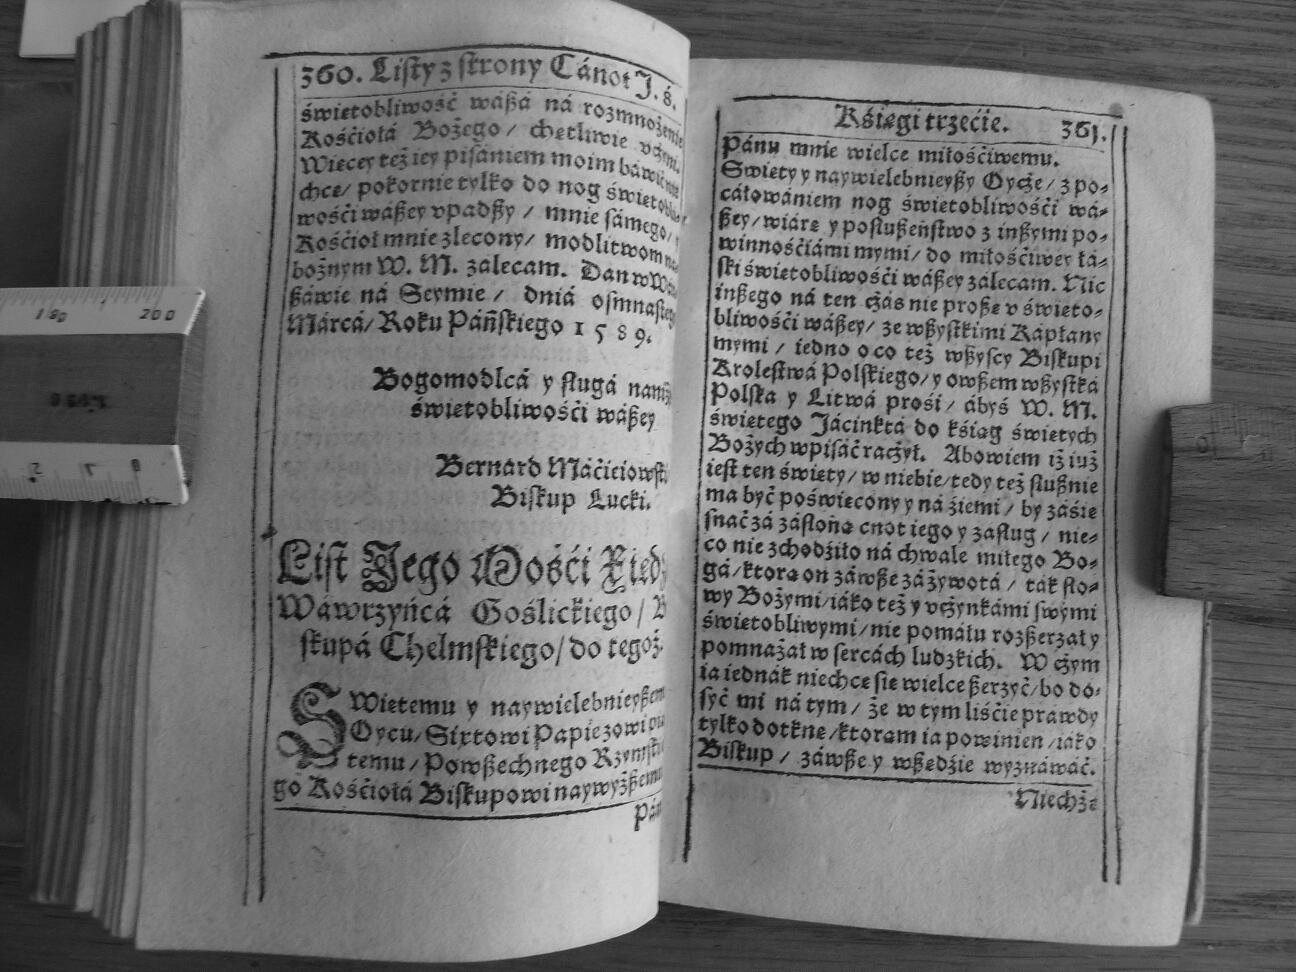 360. Listy z strony Cánot J. S.
świetobliwość wáßá ná rozmnożenie
Kośćiołá Bożego / chetliwie vczyni.
Wiecey też iey pisániem moim báwić nie
chce / pokornie tylko do nog świetobli-
wośći wáßey vpadßy / mnie sámego / y
Kośćioł mnie zlecony / modlitwom na-
bożnym W. M. zalecam. Dan w Wár-
ßáwie ná Seymie / dniá osmnastego
Márcá / Roku Páńskiego 1589.
Bogomodlcá y slugá naniż
świetobliwośći wáßey
Bernard Máćieiowski
Biskup Lucki.
List Jego Mośći Xiedz
Wáwrzyńcá Goślickiego / B
skupá Chelmskiego / do tegoż.
SWietemu y naywielebnieyßem
Oycu / Sixtowi Papieżowi pu
temu / Powßechnego Rzymski
go Kośćiołá Biskupowi naywyżßemu
Pán
Kśięgi trzećie. 361.
Pánu mnie wielce miłośćiwemu.
Swiety y naywielebnieyßy Oycze / z po-
cáłowániem nog świetobliwośći wá-
ßey / wiáre y posłußeństwo z inßymi po-
winnośćiámi mymi / do miłośćiwey łá-
ski świetobliwośći wáßey zalecam. Nic
inßego ná ten czás nie proße v świeto-
bliwośći wáßey / ze wßystkimi Kápłany
mymi / iedno o co też wßyscy Biskupi
Krolestwá Polskiego / y owßem wßystká
Polska y Litwá prośi / ábyś W. M.
świetego Jácinktá do kśiąg świetych
Bożych wpisáć raczył. Abowiem iż iuż
iest ten świety / w niebie / tedy też słußnie
ma być poświecony y ná źiemi / by záśie
snać zá zásłoną cnot iego y zasług / nie-
co nie zchodźiło ná chwale miłego Bo-
gá / ktorą on záwße zá żywotá / ták sło-
wy Bożymi / iáko też y vczynkámi swymi
świetobliwymi / nie pomáłu rozßerzał y
pomnażał w sercách ludzkich. W czym
ia iednák niechce sie wielce ßerzyć / bo do-
syć mi ná tym / że w tym liśćie prawdy
tylko dotkne / ktoram ia powinien / iáko
Biskup / záwße y wßedźie wyznáwáć.
Niechże